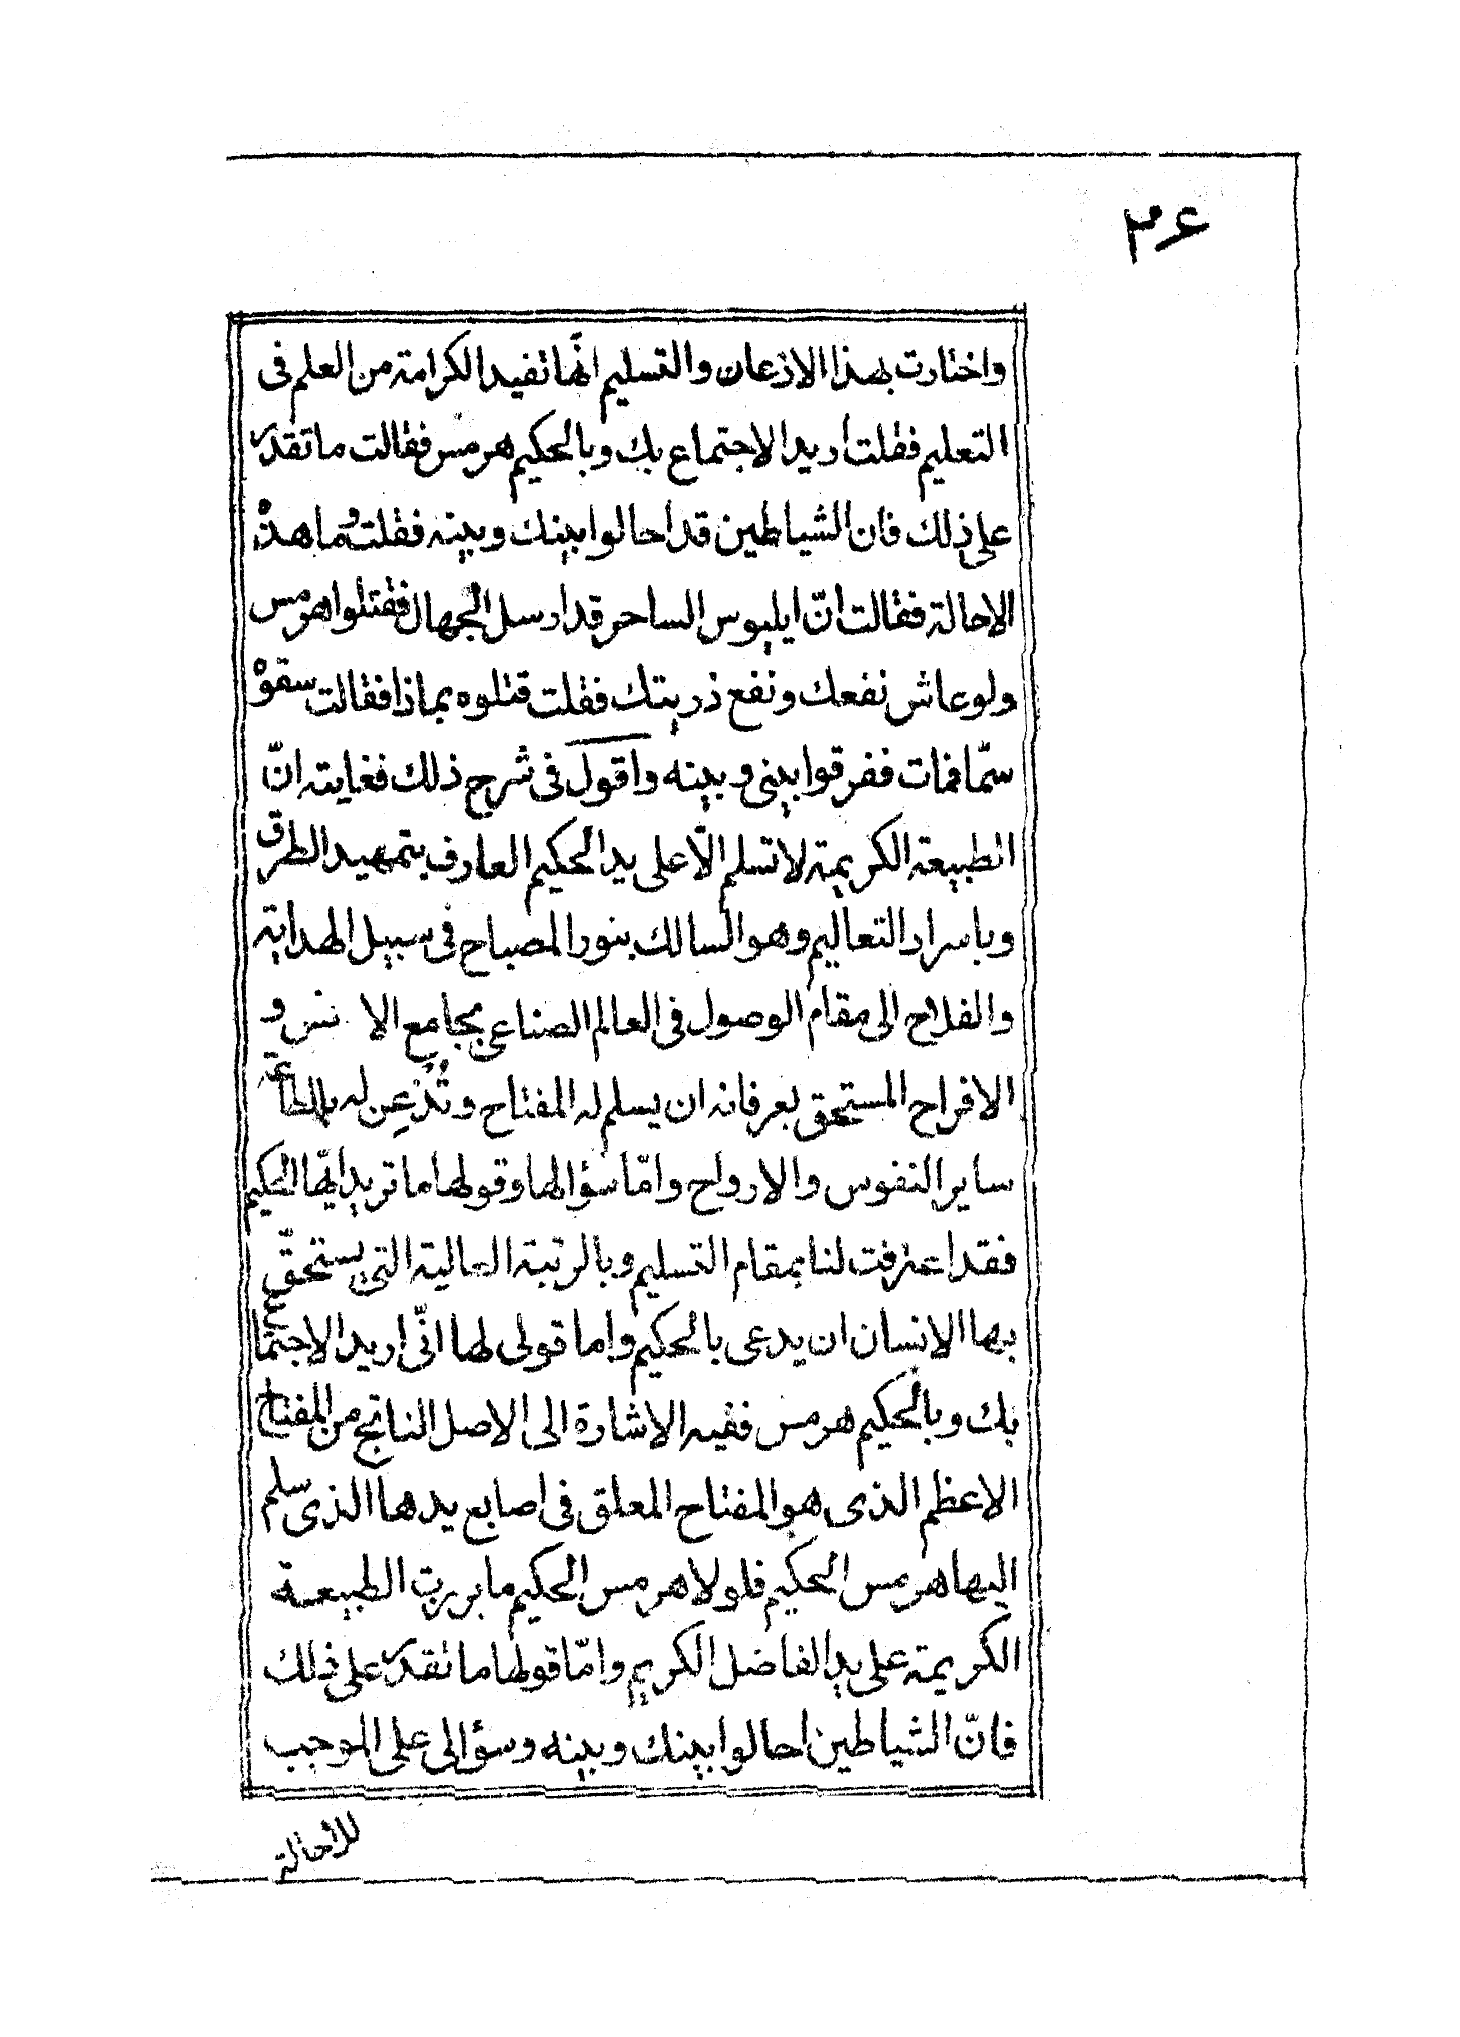 ٢٤
واختارت بهذا الاذعان والتسليم انّها تفيد الكرامة من العلم فى
التعليم فقلت اريد الاجتماع بك وبالحكيم هرمس فقالت ما تقدر
على ذلك فان الشياطين قد احالوا بينك وبينه فقلت وما هذه
الاحالة فقالت انّ ايلبوس الساحر قد ارسل الجهال فقتلوا هرمس
ولو عاش نفعك ونفع ذريتك فقلت قتلوه بماذا فقالت سقوه
سمّا فمات ففرقوا بينى وبينه واقول فى شرح ذلك فغايته انّ
الطبيعة الكريمة لا تسلم الّا على يد الحكيم العارف بتمهيد الطرق
وباسرار التعاليم وهو السالك بنور المصباح فى سبيل الهداية
والفلاح الى مقام الوصول فى العالم الصناعى بمجامع الانس و
الافراح المستحق بعرفانه ان يسلم له المفتاح وتُذعِن له بالطاعة
ساير النفوس والارواح وامّا سؤالها وقولها ما تريد ايّها الحكيم
فقد اعترفت لنا بمقام التسليم وبالرتبة العالية التى يستحقّ
بها الانسان ان يدعى بالحكيم واما قولى لها انّى اريد الاجتماع
بك وبالحكيم هرمس ففيه الاشارة الى الاصل الناتج من المفتاح
الاعظم الذى هو المفتاح المعلق فى اصابع يدها الذى سلم
اليها هرمس الحكيم فلولا هرمس الحكيم ما بررت الطبيعة
الكريمة على يد الفاضل الكريم وامّا قولها ما تقدر على ذلك
فانّ الشياطين احالوا بينك وبينه وسؤالى على الموجب
للاحالة